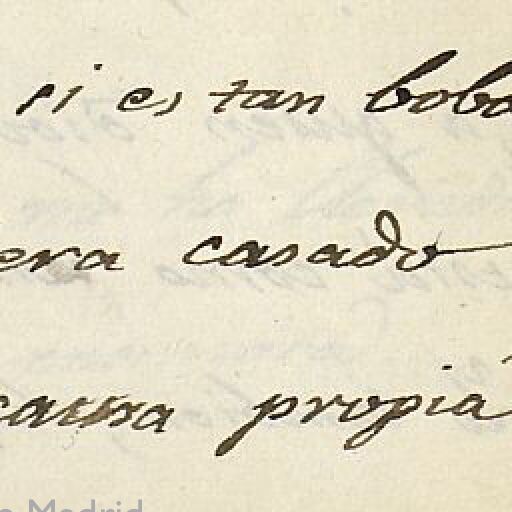 si es tan bobo
era casado
causa propia
Madrid